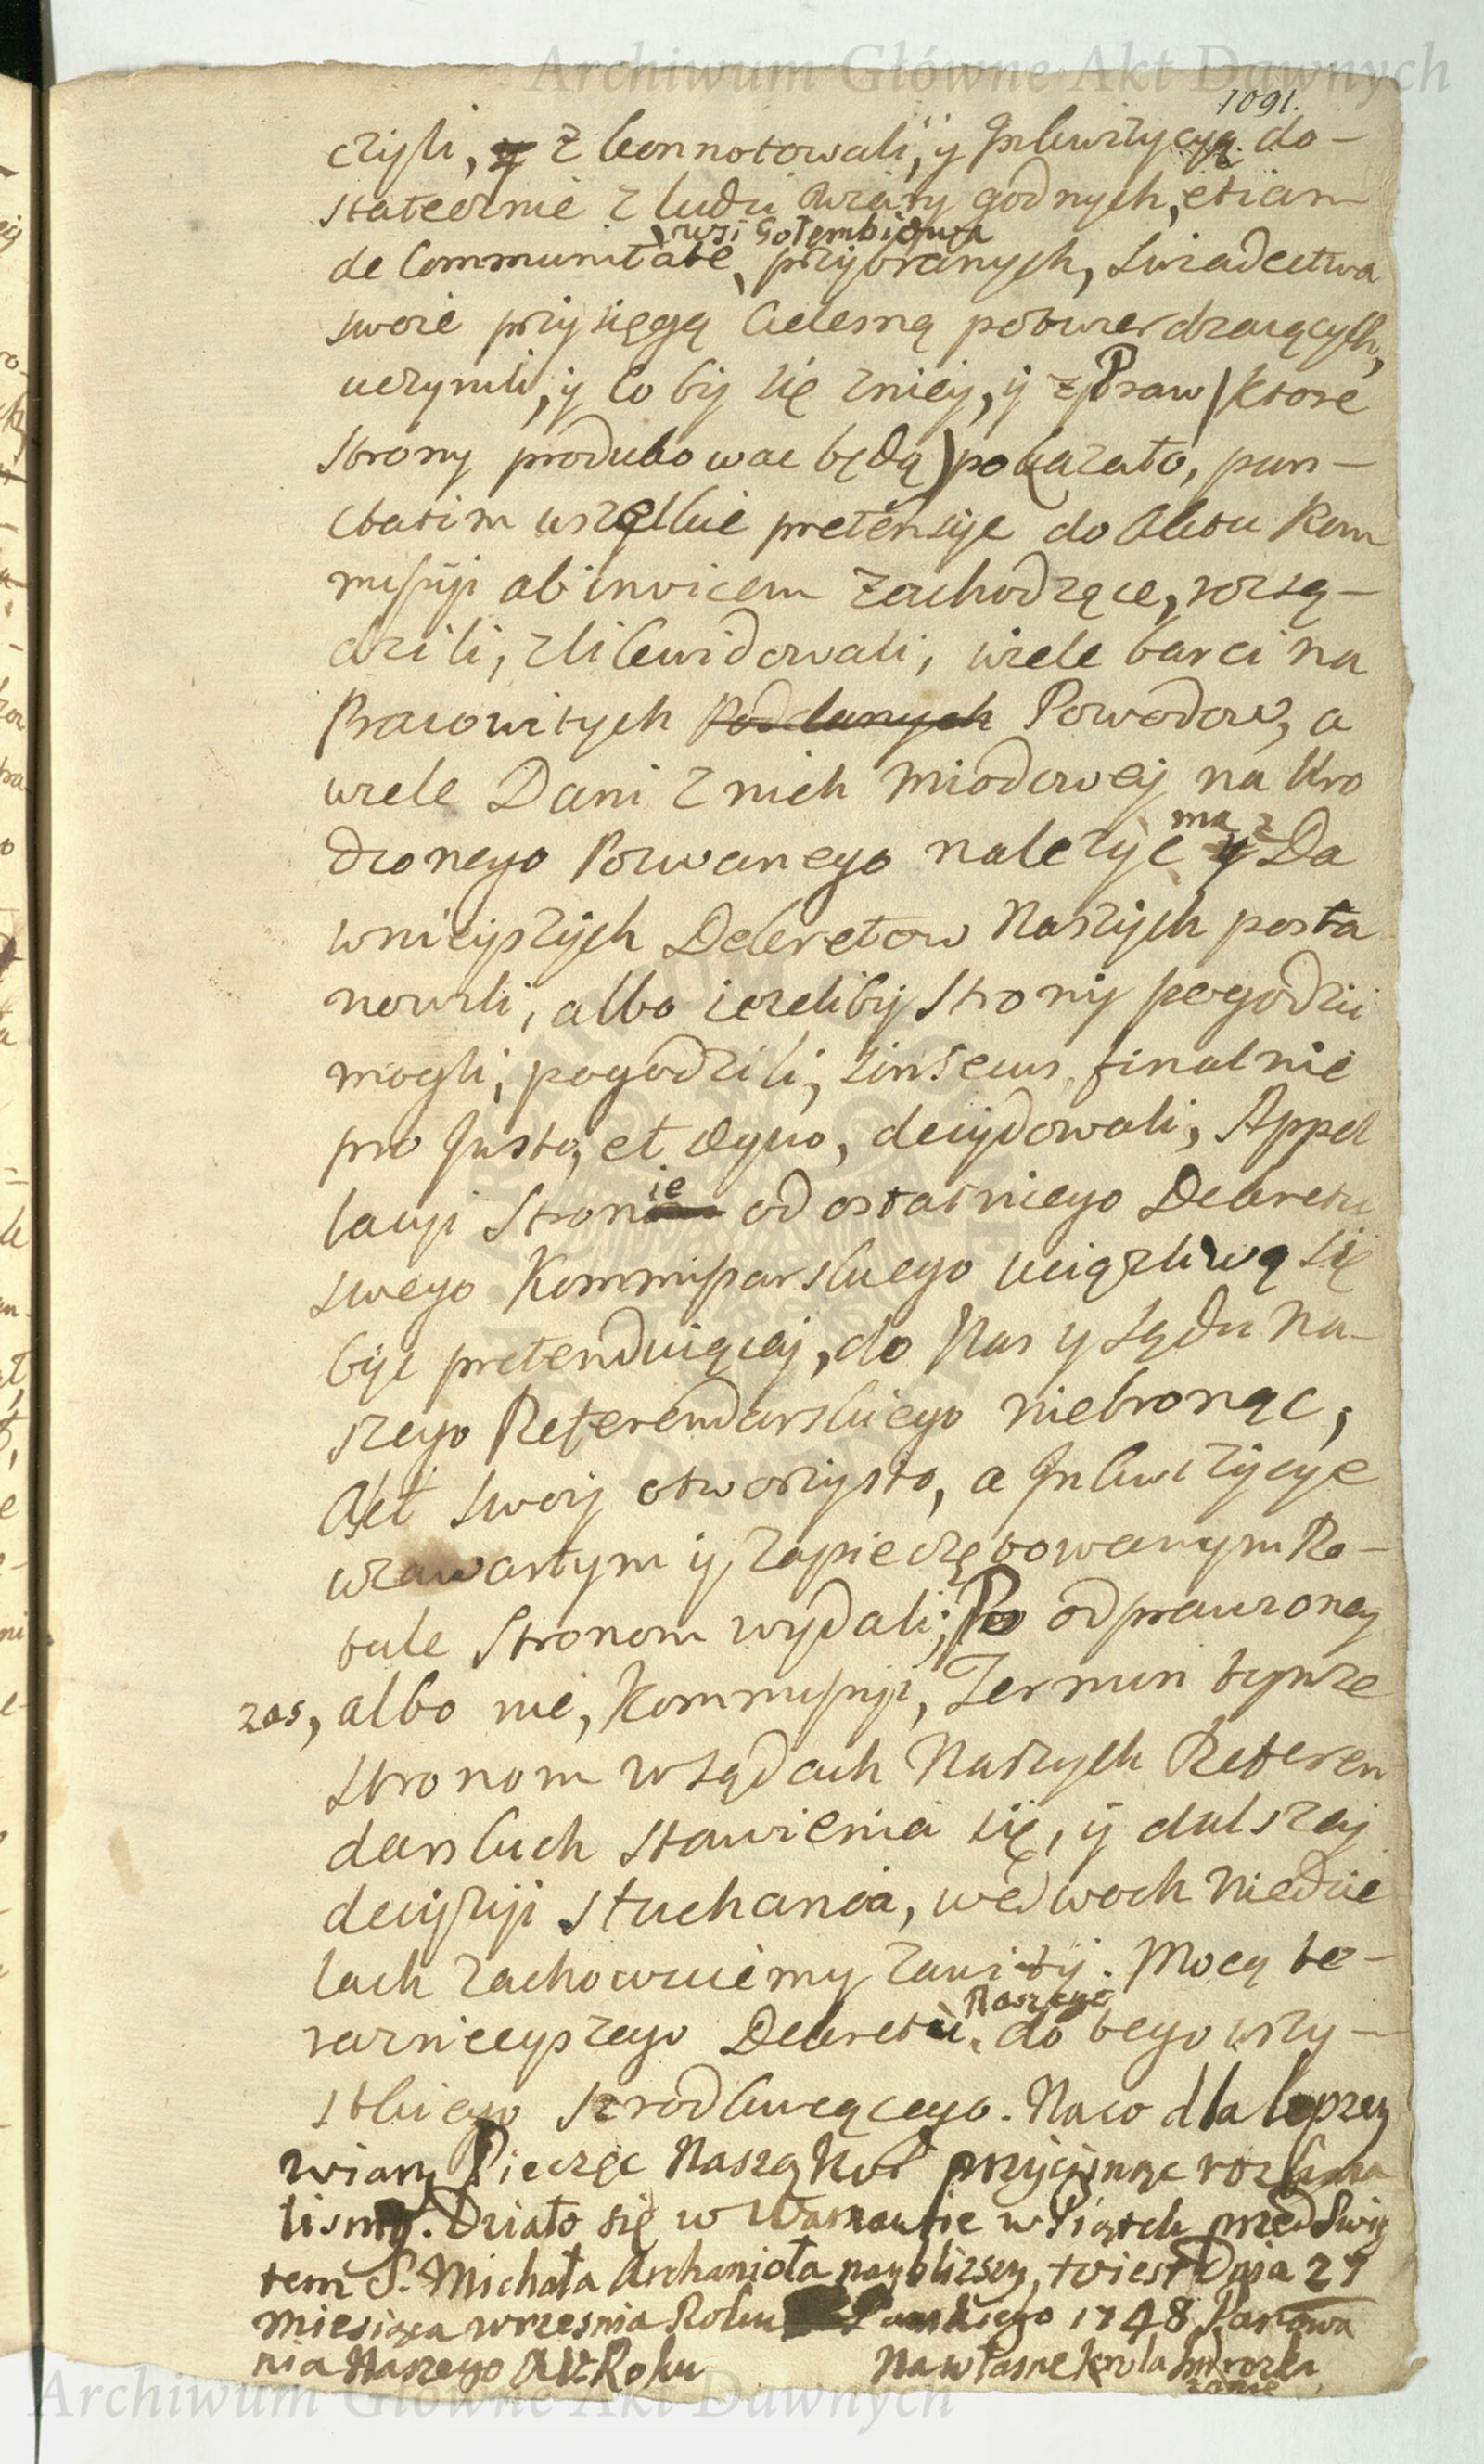 Archiwum Główne Akt Dawnych
1091.
czyli, y z konnotowali, y Inkwizycyą do-
statecznie z ludzi wiary godnych, etiam
wsi Gołembiowa
de Communitate, przybranych, swiadectwa
swoie przysięgą Cielesną potwierdzaiących,
uczynili, y co by się zniey, y z Praw (ktore
Strony produkowac będą) pokazało, pun-
ctatim wszelkie pretensye do Aktu Kom
missyi ab invicem zachodzące, rozsą-
dzili, zlikwidowali, wiele barci na
Pracowitych Poddanych Powodow, a
wiele Dani z nich Miodowey na Uro
dzonego Pozwanego należyć ma z Da
wnieyszych Dekretow Naszych posta
nowili, albo ieżeliby Strony pogodzić
mogli, pogodzili, sin secus finalnie
pro Justo, et æquo, decydowali, Appel
lacyi Stronie od ostatniego Dekretu
swego Kommissarskiego uciążliwą się
być pretenduiącey, do Nas y Sądu Na-
szego Referendarskiego niebroniąc,
Akt swoy otworzysto, a Inkwizycye
w zawartym y zapieczętowanym Ro-
tule Stronom wydali; Po odprawioney
zas, albo nie, Kommissyi, Termin tymże
Stronom w Sądach Naszych Referen
darskich stawienia się, y dalszey
decyzyi słuchania, we dwoch Niedzie
lach zachowuiemy zawity. Mocą te-
raznieyszego Dekretu Naszego do tego wszy-
stkiego szrodkuiącego. Naco dla lepszey
wiary Pieczęć Naszą Kor przycisnąć rozkaza
lismy. Działo się w Warszawie w Piątek przed Swię
tem S. Michała Archanioła naybliższy, to iest Dnia 27
miesiąca wrzesnia Roku Pańskiego 1748 Panowa
nia Naszego XV Roku
Na własne Krola Jmci rozka
zanie
Archiwum Główne Akt Dawnych